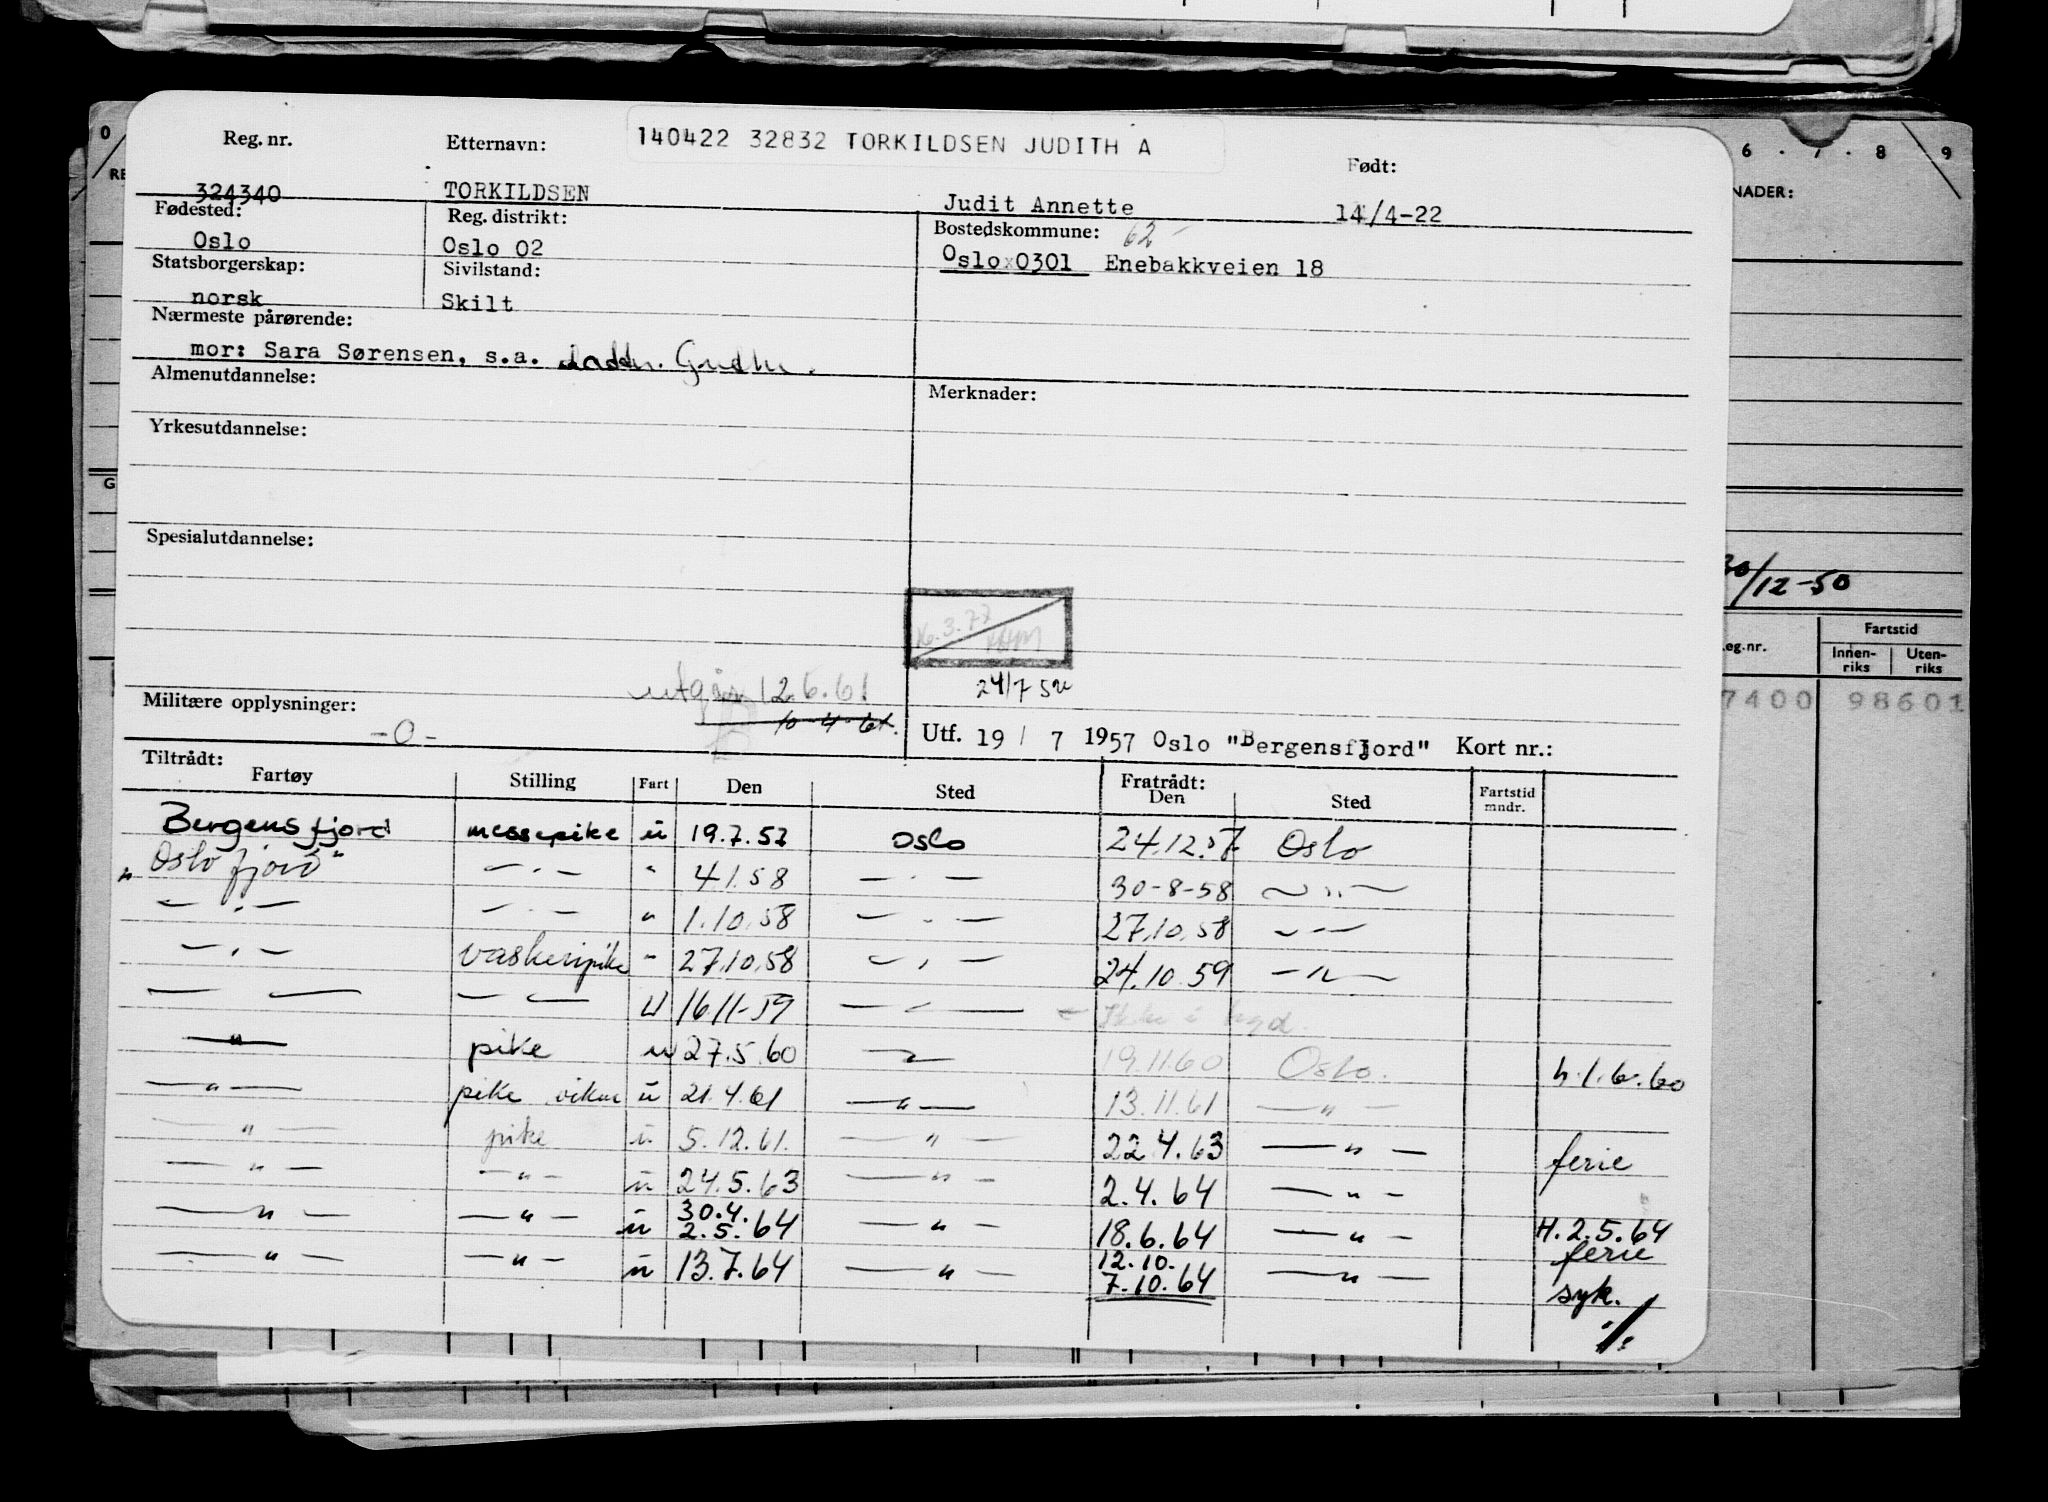 140422 32832 TORKILDSEN JUDITH A
Reg. nr. Etternavn: Født:
324340 TORKILDSEN Judit Annette 14/4-22
Fødested: Reg. distrikt: Bostedskommune: 62
Oslo Oslo 02 Oslo x 0301 Enebakkveien 18
Statsborgerskap: Sivilstand:
norsk Skilt
Nærmeste pårørende:
mor: Sara Sørensen, s.a.
Almenutdannelse: Merknader:
Yrkesutdannelse:
Spesialutdannelse:
16.3.77
utgår 12.6.61 24/7
Militære opplysninger: 10-4-61.
-0- Utf. 19 / 7 1957 Oslo "Bergensfjord" Kort nr.:
Tiltrådt: Fratrådt:
Fartøy Stilling Fart Den Sted Den Sted Fartstid mndr.
Bergensfjord messepike u 19.7.57 Oslo 24.12.57 Oslo
"Oslofjord" — · — " 4.1.58 — · — 30-8-58 — " —
— · — — · — " 1.10.58 — · — 27.10.58 — · —
— · — vaskeripike " 27.10.58 — · — 24.10.59 — " —
— — — — u 16.11-59 — — Ikke i
— " — pike u 27.5.60 — " — 19.11.60 Oslo. h.1.6.60
— " — pike vikar u 21.4.61 — " — 13.11.61 — " —
— " — pike u 5.12.61. — " — 22.4.63 — " — ferie
— " — — " — u 24.5.63 — " — 2.4.64 — " —
— " — — " — u 30.4. 2.5.64 — " — 18.6.64 — " — H.2.5.64 ferie
— " — — " — u 13.7.64 — " — 12.10. 7.10.64 — " — syk.
·/.
0
RE
G
6 . 7 . 8 9
NADER:
30/12-50
eg.nr. Fartstid
Innen- riks Uten- riks
7400 98601